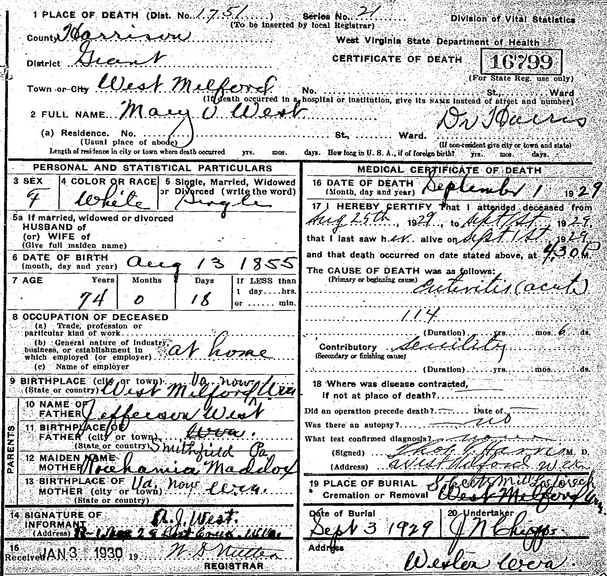 1 PLACE OF DEATH (Dist. No. 1751 Series No. 21 Division of Vital Statistics
(To be inserted by local Registrar)
County Harrison West Virginia State Department of Health
District Grant CERTIFICATE OF DEATH 16799
(For State Reg. use only)
Town or City West Milford No. St., Ward
(If death occurred in a hospital or institution, give its NAME instead of street and number)
2 FULL NAME Mary V West Dr Harris
(a) Residence. No. St., Ward.
(Usual place of abode) (If non-resident give city or town and state)
Length of residence in city or town where death occurred yrs. mos. days. How long in U. S. A., if of foreign birth? yrs. mos. days.
PERSONAL AND STATISTICAL PARTICULARS
3 SEX 4 COLOR OR RACE 5 Single, Married, Widowed
or Divorced (write the word)
F White Single
5a If married, widowed or divorced
HUSBAND of
(or) WIFE of
(Give full maiden name)
6 DATE OF BIRTH
(month, day and year) Aug 13 1855
7 AGE Years Months Days If LESS than
1 day....hrs.
or .... min.
74 0 18
8 OCCUPATION OF DECEASED
(a) Trade, profession or
particular kind of work
(b) General nature of Industry,
business, or establishment in
which employed (or employer) at home
(c) Name of employer
9 BIRTHPLACE (city or town) Va, now
(State or country) West Milford W.va.
10 NAME OF
FATHER Jefferson West
11 BIRTHPLACE OF
FATHER (city or town)
(State or country) Smithfield Pa
12 MAIDEN NAME
MOTHER Maddox
13 BIRTHPLACE OF
MOTHER (city or town) Va, now
(State or country) W.va.
14 SIGNATURE OF
INFORMANT R.J. West.
(Address)
15
Received JAN 3 1930 19
REGISTRAR
MEDICAL CERTIFICATE OF DEATH
16 DATE OF DEATH
(Month, day and year) September 1 1929
17 I HEREBY CERTIFY That I attended deceased from
Aug 25th, 1929, to Sept 1st, 1929
that I last saw her alive on Sept 1st 1929
and that death occurred on date stated above, at 4,30 P
The CAUSE OF DEATH was as follows:
(Primary or beginning cause) Enteritis (acute)
114
(Duration) yrs. mos. 6 ds.
Contributory Senility
(Secondary or finishing cause)
(Duration) yrs. mos. ds.
18 Where was disease contracted,
If not at place of death?
Did an operation precede death? Date of
Was there an autopsy? no
What test confirmed diagnosis?
(Signed) M. D.
(Address) West Milford W.va
19 PLACE OF BURIAL
Cremation or Removal West Milford
Date of Burial 20 Undertaker
Sept 3 1929
Address
Weston W.va.